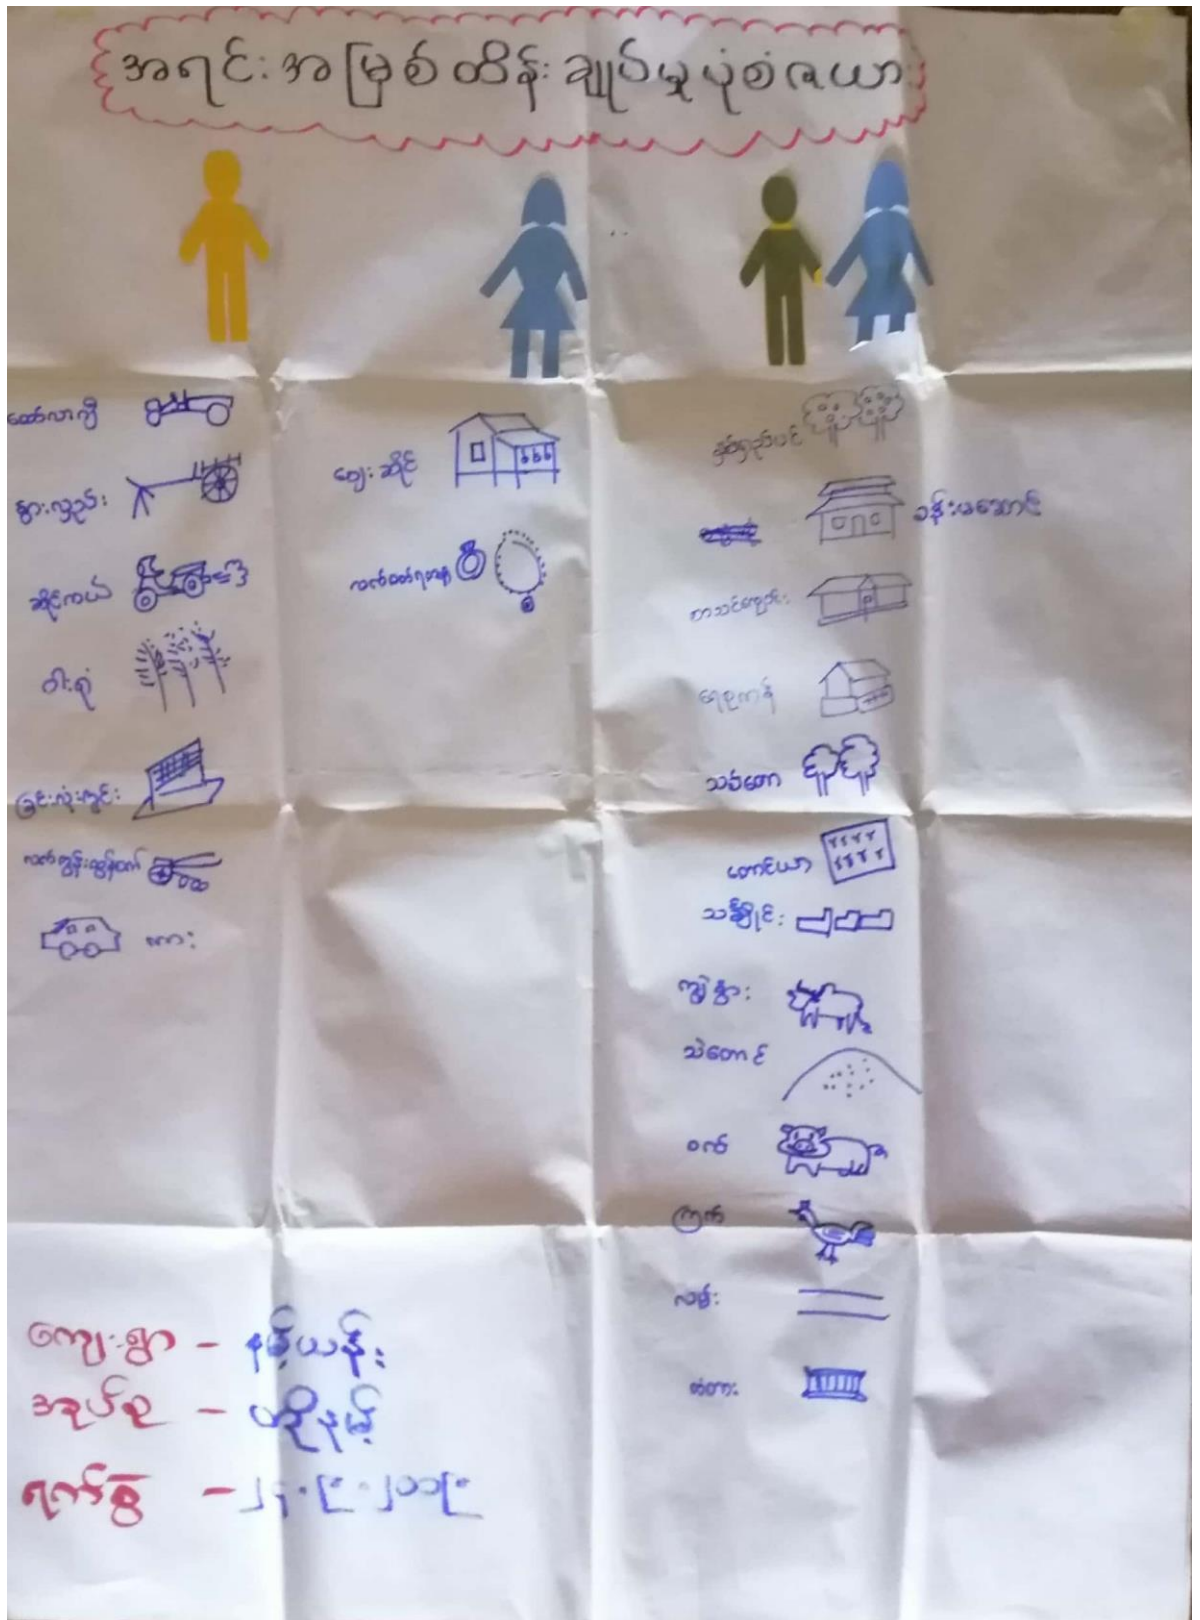 အရင်းအမြစ်ထိန်းချုပ်မှုပုံစံဇယား
ထော်လာဂျီ
နွားလှည်း
ဆိုင်ကယ်
ဝါးရုံ
ခြင်းလုံးကွင်း
လက်တွန်းထွန်စက်
ကား
ဈေးဆိုင်
လက်ဝတ်ရတနာ
နှစ်ရှည်ပင်
ခန်းမဆောင်
စာသင်ကျောင်း
ရေစုကန်
သစ်တော
တောင်ယာ
သင်္ချိုင်း
ကျွဲနွား
သဲတောင်
ဝက်
ကြက်
လမ်း
တံတား
ကျေးရွာ - နမ့်ယန်း
အုပ်စု -
ရက်စွဲ -